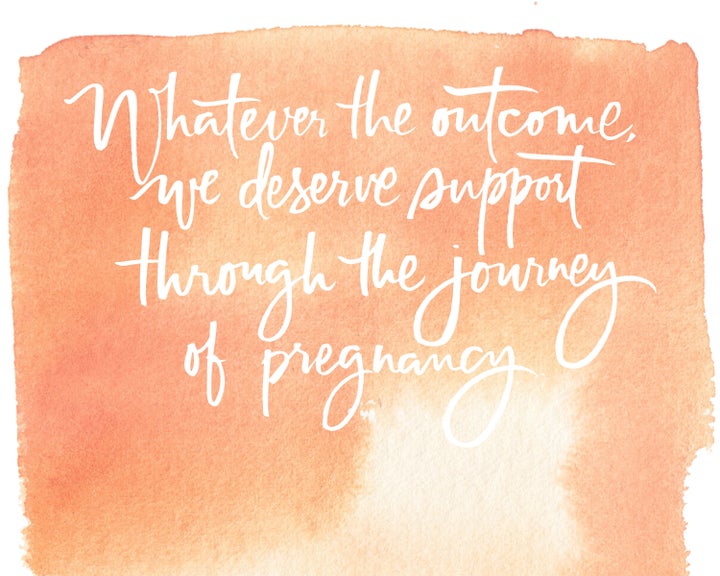 Whatever the outcome,
we deserve support
through the journey
of pregnancy